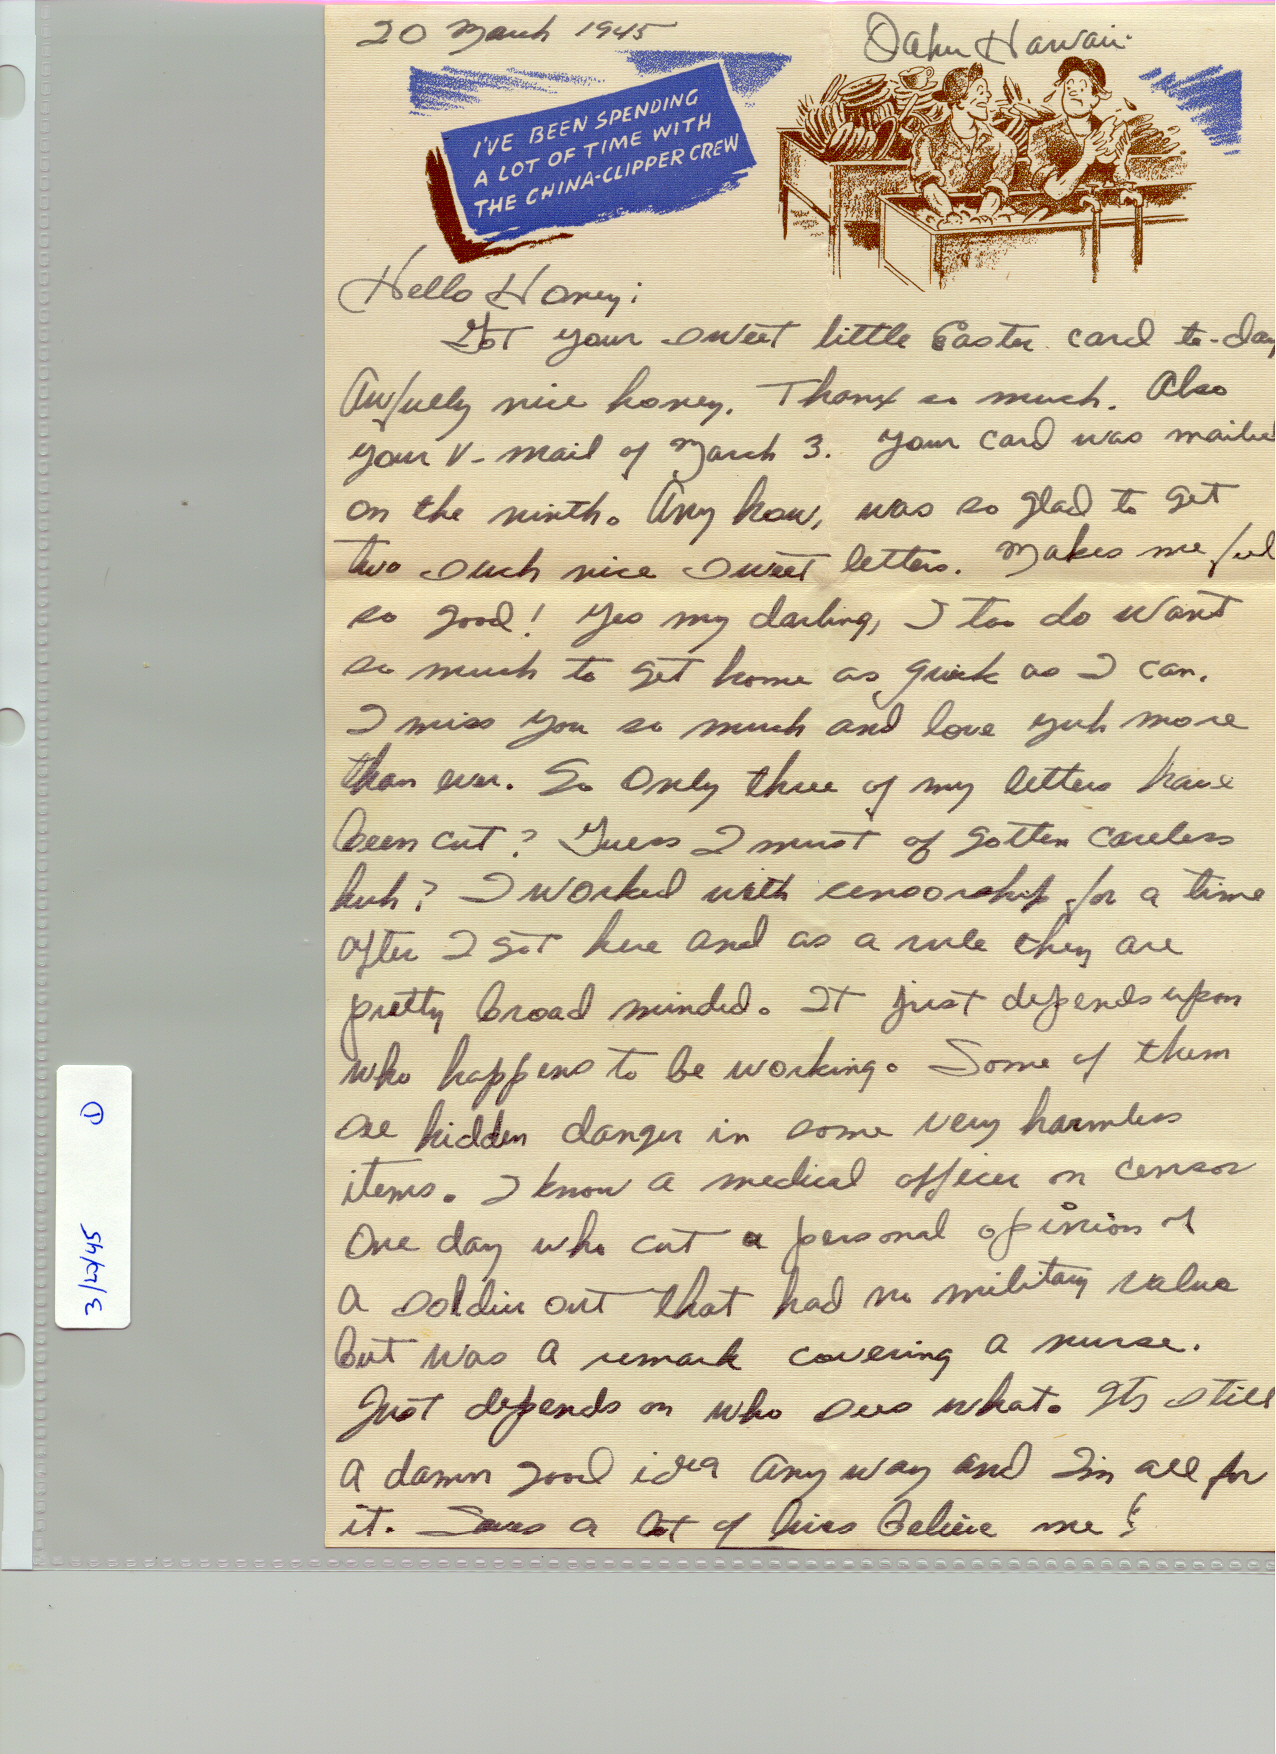 20 March 1945
Oahu Hawaii.
I'VE BEEN SPENDING
A LOT OF TIME WITH
THE CHINA-CLIPPER CREW
Hello Honey:
Got your sweet little Easter card to-day
Awfully nice honey. Thanx so much. Also
your V-mail of March 3. Your card was mailed
on the ninth. Any how, was so glad to get
two such nice sweet letters. Makes me feel
so good! Yes my darling, I too do want
so much to get home as quick as I can.
I miss you so much and love yuh more
than ever. So only three of my letters have
been cut? Guess I must of gotten careless
huh? I worked with censorship for a time
after I got here and as a rule they are
pretty broad minded. It just depends upon
who happens to be working. Some of them
see hidden danger in some very harmless
items. I know a medical officer on censor
one day who cut a personal opinion of
a soldier out that had no military value
but was a remark covering a nurse.
Just depends on who sees what. Its still
a damn good idea any way and I'm all for
it. Saves a lot of lives believe me!
3/20/45 1